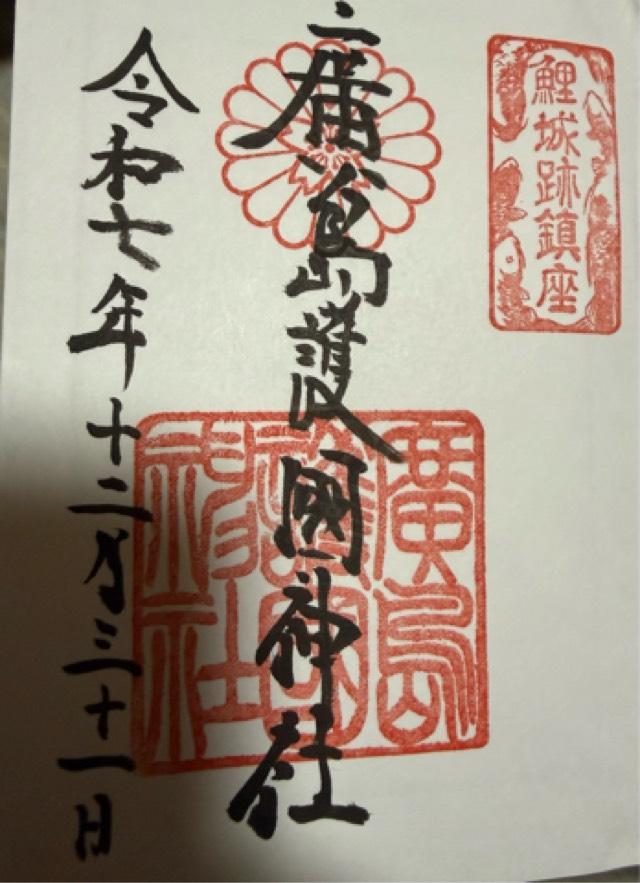 鯉城跡鎮座
廣島護國神社
廣島
護國
神社
令和七年十二月三十一日